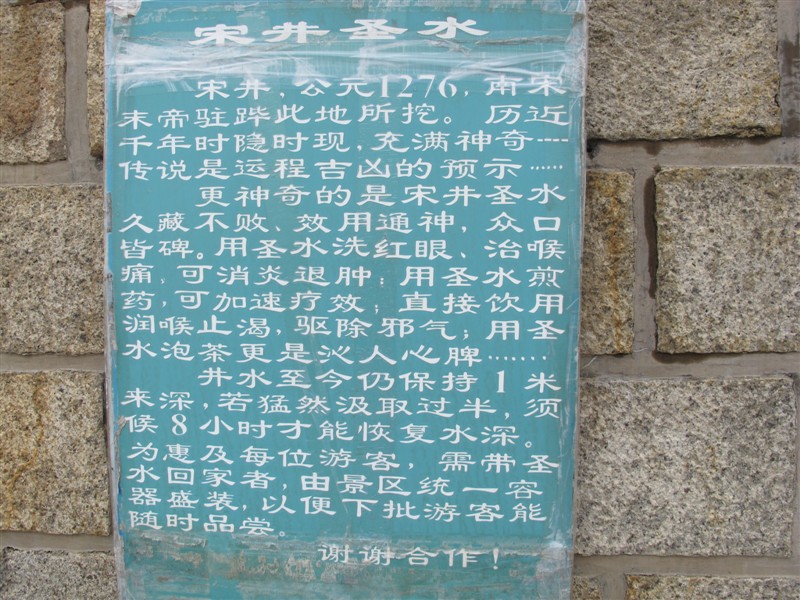 宋井圣水
宋井，公元1276，南宋
末帝驻跸此地所挖。历近
千年时隐时现，充满神奇……
传说是运程吉凶的预示……
更神奇的是宋井圣水
久藏不败、效用通神，众口
皆碑。用圣水洗红眼、治喉
痛，可消炎退肿；用圣水煎
药，可加速疗效；直接饮用
润喉止渴，驱除邪气；用圣
水泡茶更是沁人心脾……
井水至今仍保持1米
来深，若猛然汲取过半，须
候8小时才能恢复水深。
为惠及每位游客，需带圣
水回家者，由景区统一容
器盛装，以便下批游客能
随时品尝。
谢谢合作！